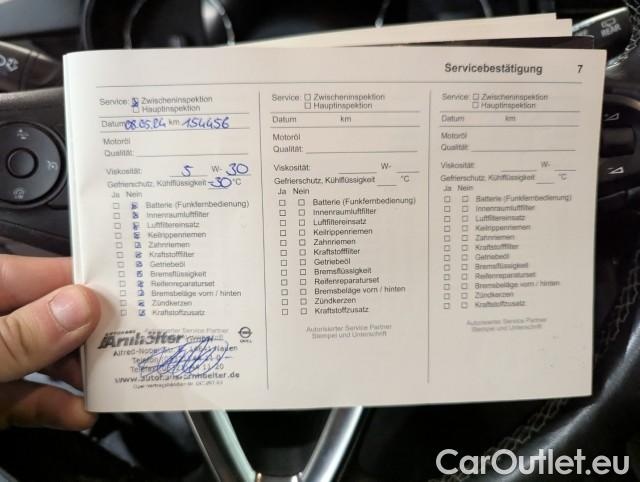 Servicebestätigung 7
Service: Zwischeninspektion
Hauptinspektion
Datum 08.05.24 km 154456
Motoröl
Qualität:
Viskosität: 5 W- 30
Gefrierschutz, Kühlflüssigkeit -30 °C
Ja Nein
Batterie (Funkfernbedienung)
Innenraumluftfilter
Luftfiltereinsatz
Keilrippenriemen
Zahnriemen
Kraftstofffilter
Getriebeöl
Bremsflüssigkeit
Reifenreparaturset
Bremsbeläge vorn / hinten
Zündkerzen
Kraftstoffzusatz
Autorisierter Service Partner
Arnhölter GmbH
OPEL
Alfred-Nobel-
Telefon
www.autohaus-arnhoelter.de
Service: Zwischeninspektion
Hauptinspektion
Datum km
Motoröl
Qualität:
Viskosität: W-
Gefrierschutz, Kühlflüssigkeit °C
Ja Nein
Batterie (Funkfernbedienung)
Innenraumluftfilter
Luftfiltereinsatz
Keilrippenriemen
Zahnriemen
Kraftstofffilter
Getriebeöl
Bremsflüssigkeit
Reifenreparaturset
Bremsbeläge vorn / hinten
Zündkerzen
Kraftstoffzusatz
Autorisierter Service Partner
Stempel und Unterschrift
Service: Zwischeninspektion
Hauptinspektion
Datum km
Motoröl
Qualität:
Viskosität: W-
Gefrierschutz, Kühlflüssigkeit °C
Ja Nein
Batterie (Funkfernbedienung)
Innenraumluftfilter
Luftfiltereinsatz
Keilrippenriemen
Zahnriemen
Kraftstofffilter
Getriebeöl
Bremsflüssigkeit
Reifenreparaturset
Bremsbeläge vorn / hinten
Zündkerzen
Kraftstoffzusatz
Autorisierter Service Partner
Stempel und Unterschrift
REAR
CarOutlet.eu